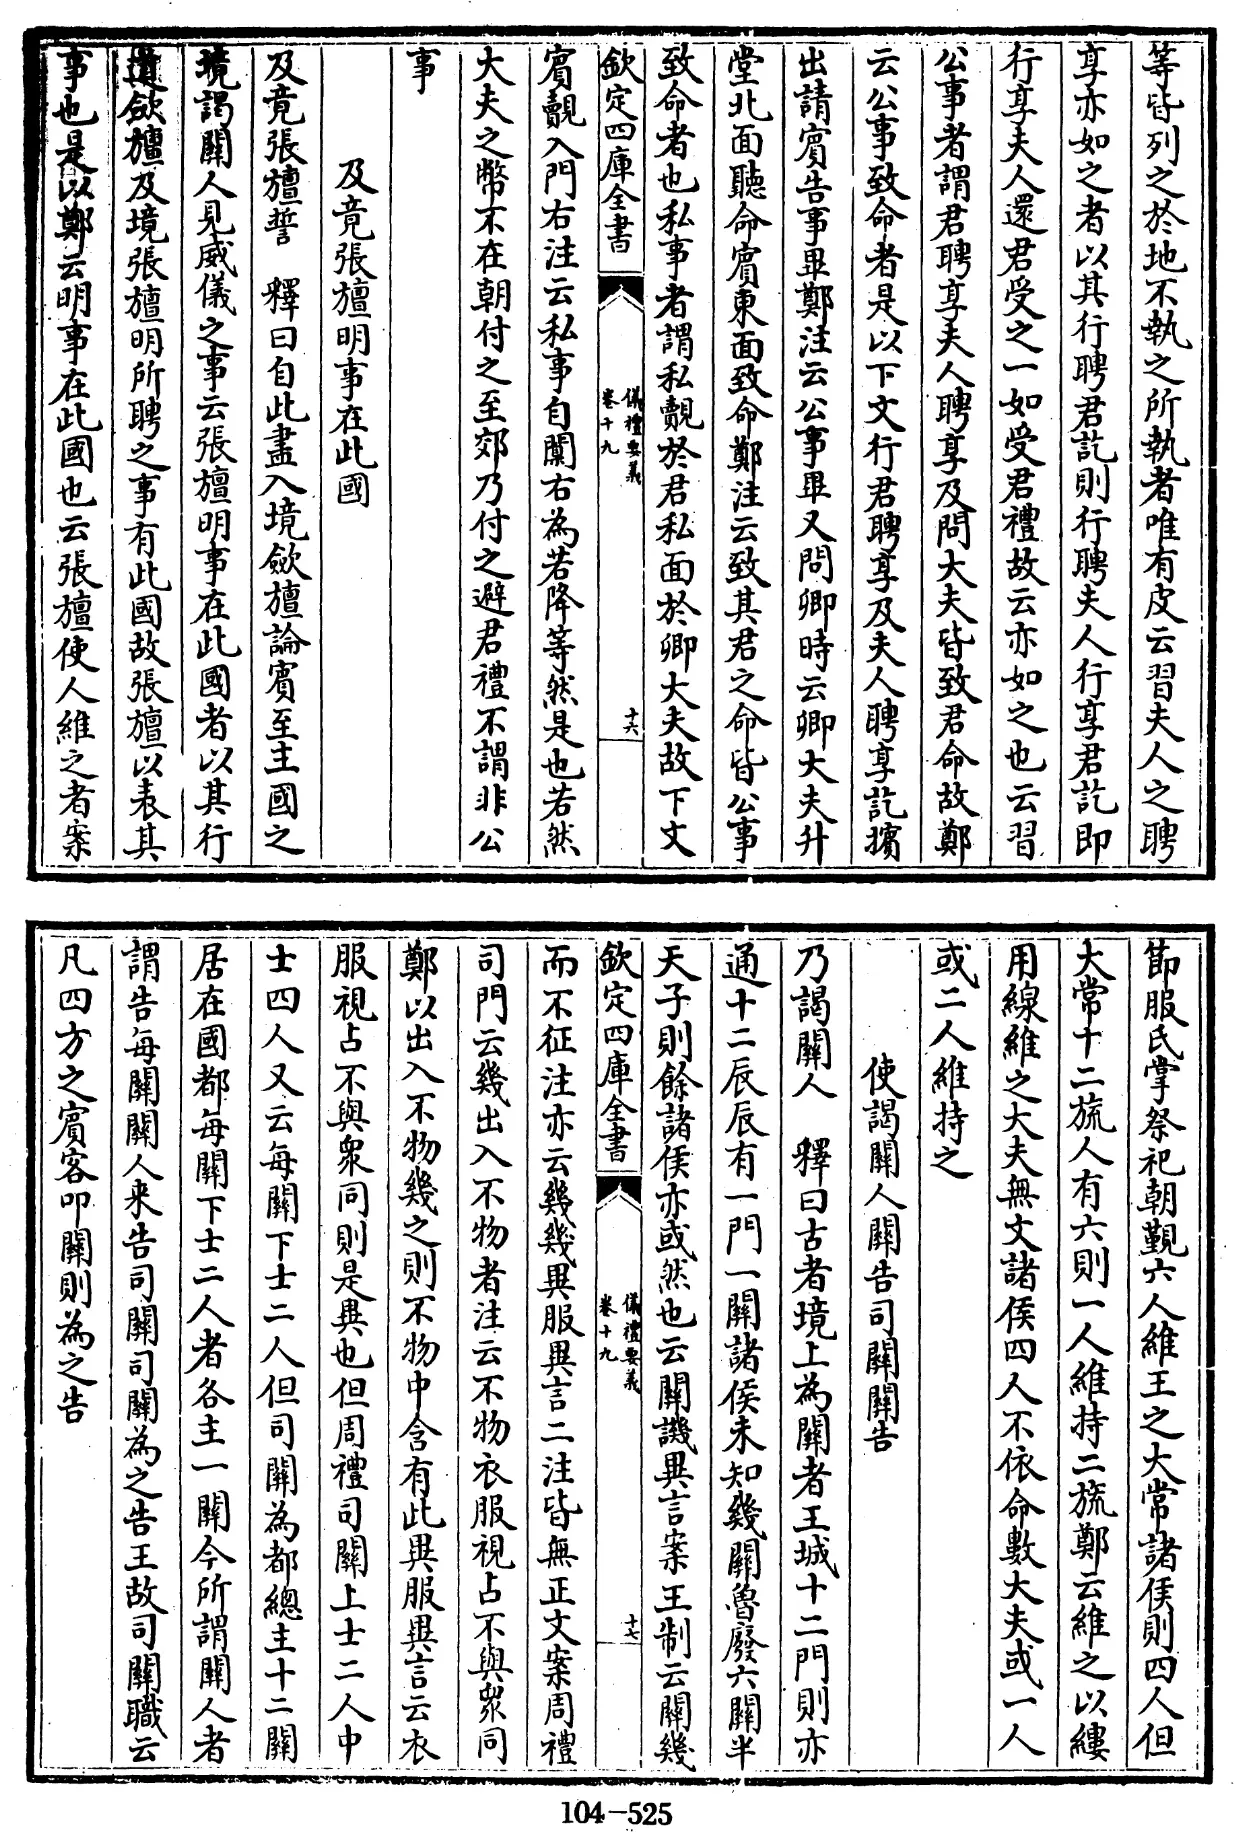 等皆列之於地不執之所執者唯有皮云習夫人之聘
享亦如之者以其行聘君訖則行聘夫人行享君訖即
行享夫人還君受之一如受君禮故云亦如之也云習
公事者謂君聘享夫人聘享及問大夫皆致君命故鄭
云公事致命者是以下文行君聘享及夫人聘享訖擯
出請賓告事畢鄭注云公事畢又問卿時云卿大夫升
堂北面聽命賓東面致命鄭注云致其君之命皆公事
致命者也私事者謂私覿於君私面於卿大夫故下文
欽定四庫全書
儀禮要義
卷十九
十六
賓覿入門右注云私事自闑右為若降等然是也若然
大夫之幣不在朝付之至郊乃付之避君禮不謂非公
事
及竟張旜明事在此國
及竟張旜誓 釋曰自此盡入境歛旜論賓至主國之
境謁關人見威儀之事云張旜明事在此國者以其行
道歛旜及境張旜明所聘之事有此國故張旜以表其
事也是以鄭云明事在此國也云張旜使人維之者案
節服氏掌祭祀朝覲六人維王之大常諸侯則四人但
大常十二旒人有六則一人維持二旒鄭云維之以縷
用線維之大夫無文諸侯四人不依命數大夫或一人
或二人維持之
使謁關人關告司關關告
乃謁關人 釋曰古者境上為關者王城十二門則亦
通十二辰辰有一門一關諸侯未知幾關魯廢六關半
天子則餘諸侯亦或然也云關譏異言案王制云關幾
欽定四庫全書
儀禮要義
卷十九
十七
而不征注亦云幾幾異服異言二注皆無正文案周禮
司門云幾出入不物者注云不物衣服視占不與衆同
鄭以出入不物幾之則不物中含有此異服異言云衣
服視占不與衆同則是異也但周禮司關上士二人中
士四人又云每關下士二人但司關為都總主十二關
居在國都每關下士二人者各主一關今所謂關人者
謂告每關關人来告司關司關為之告王故司關職云
凡四方之賓客叩關則為之告
104-525